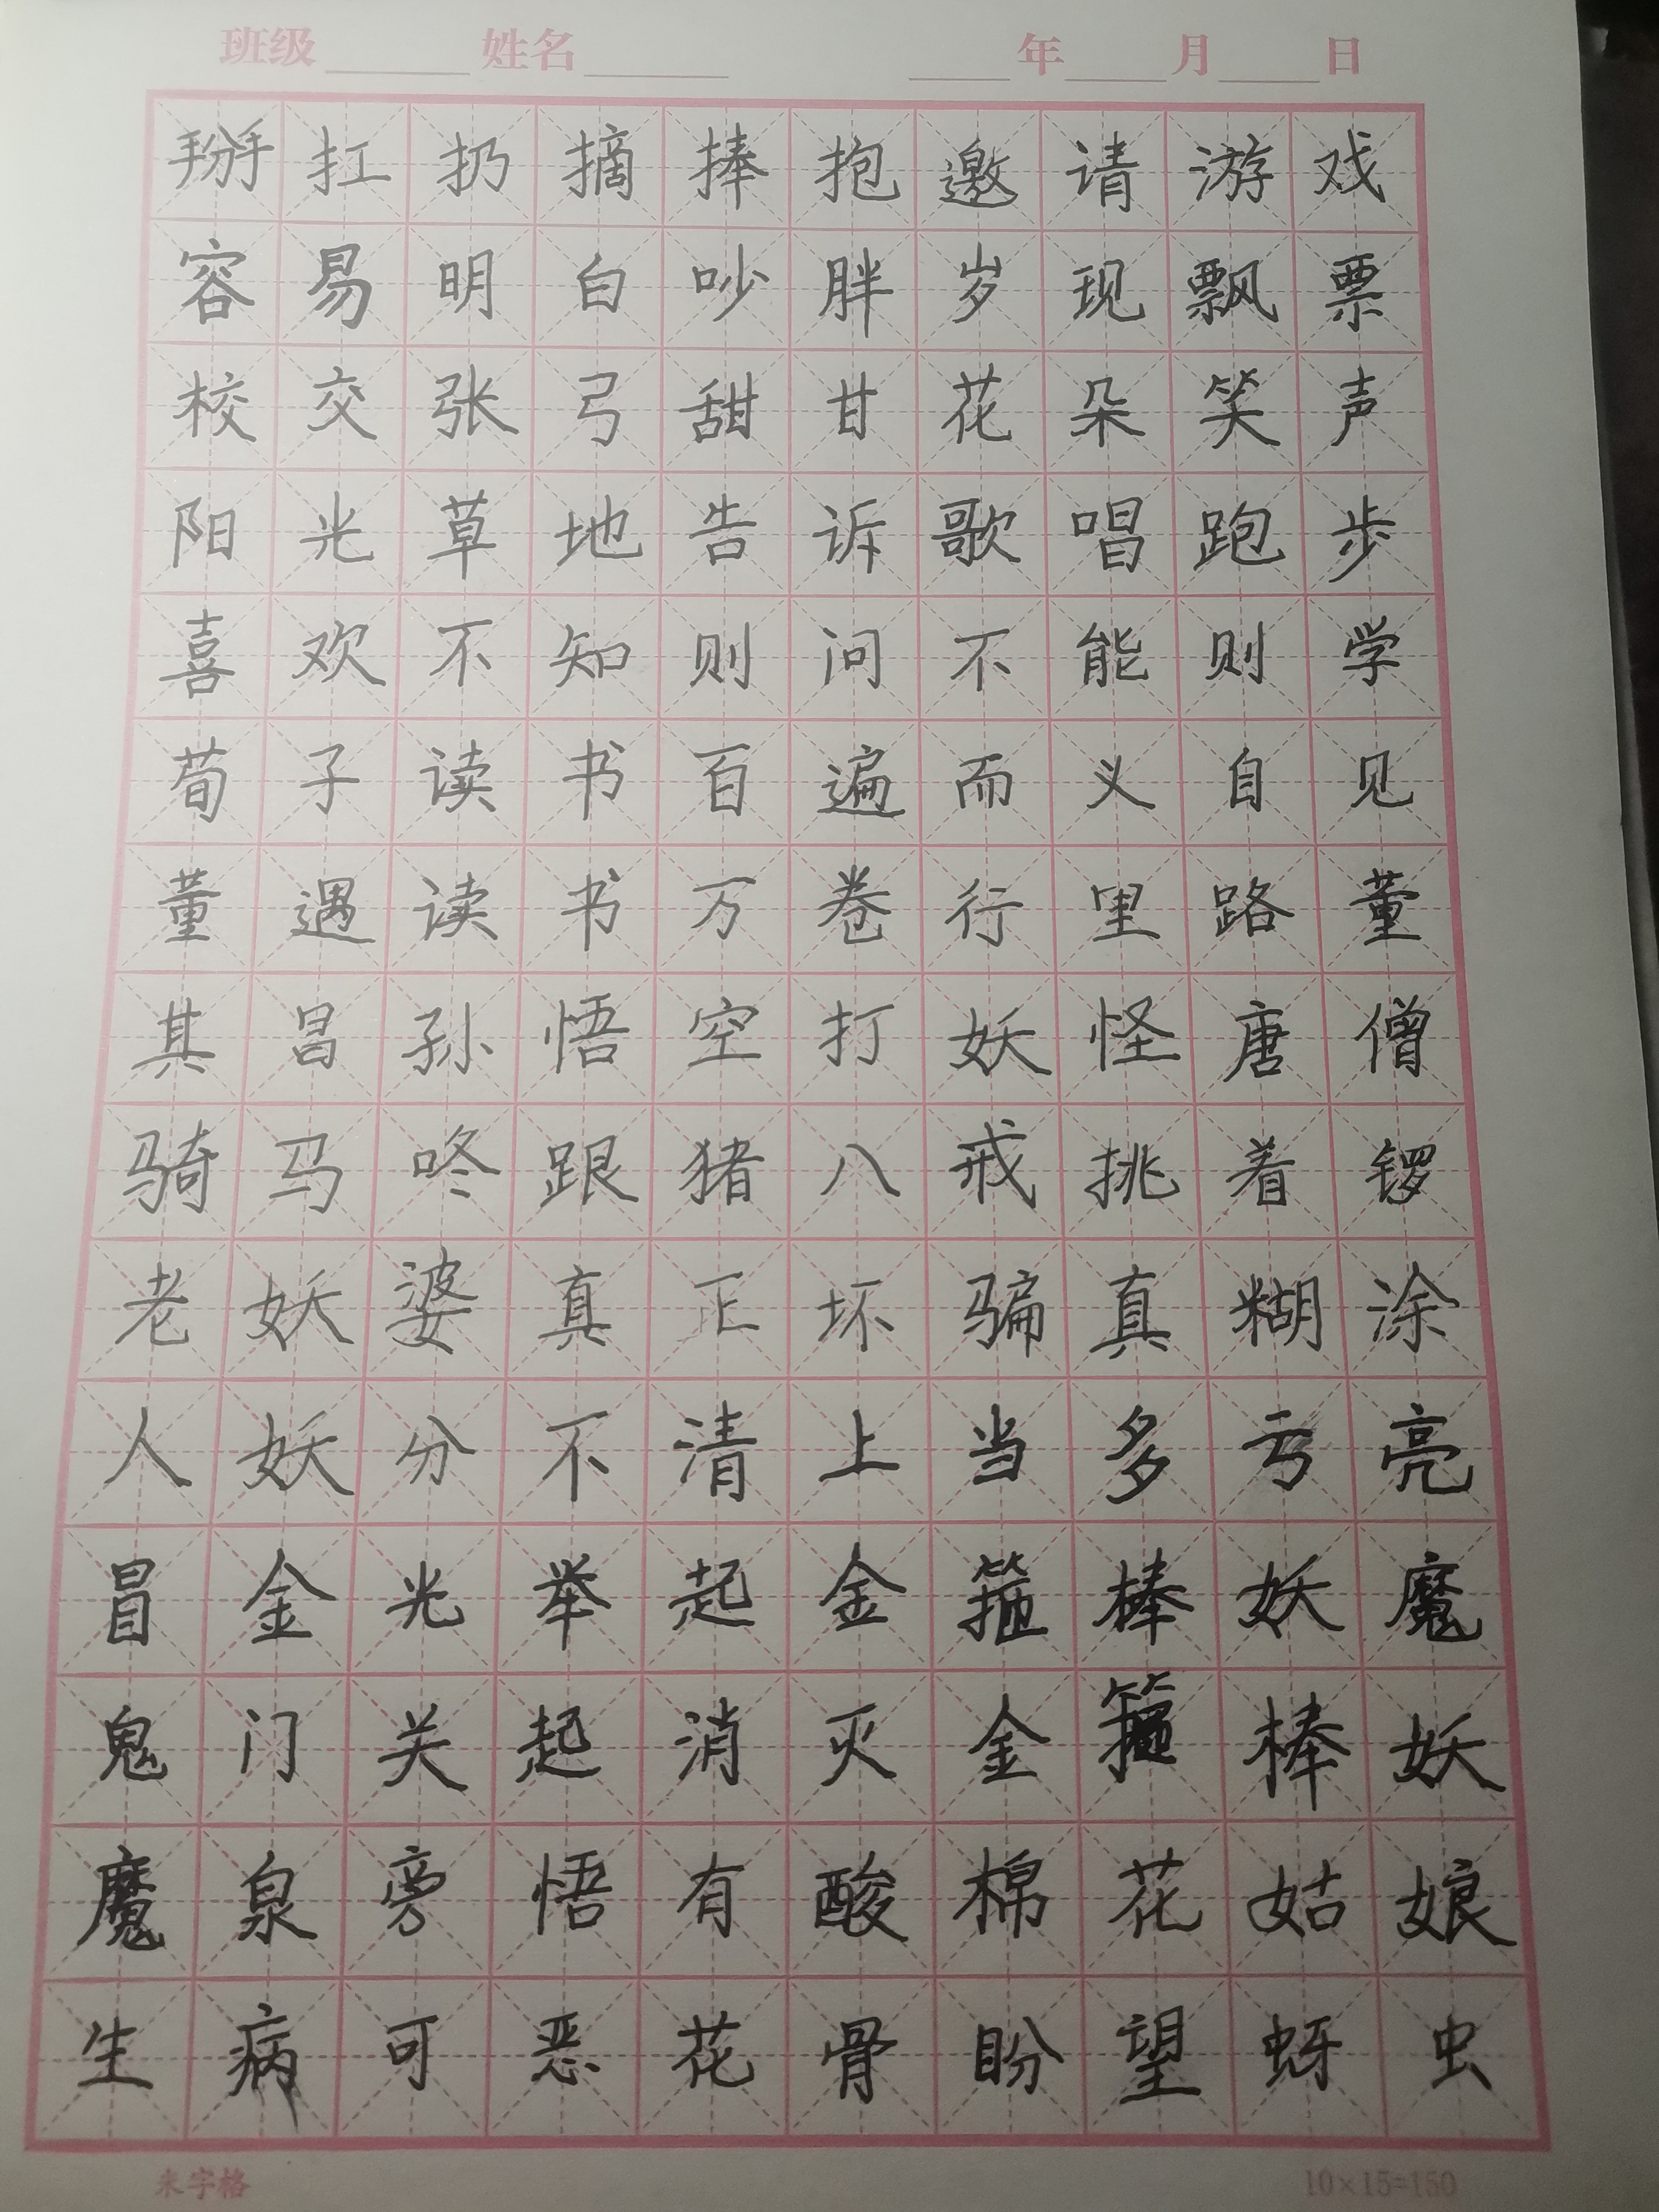 班级 姓名 年 月 日
掰扛扔摘捧抱邀请游戏
容易明白吵胖岁现飘票
校交张弓甜甘花朵笑声
阳光草地告诉歌唱跑步
喜欢不知则问不能则学
荀子读书百遍而义自见
董遇读书万卷行里路董
其昌孙悟空打妖怪唐僧
骑马咚跟猪八戒挑着锣
老妖婆真正坏骗真糊涂
人妖分不清上当多亏亮
冒金光举起金箍棒妖魔
鬼门关起消灭金箍棒妖
魔泉旁悟有酸棉花姑娘
生病可恶花骨盼望蚜虫
米字格 10×15=150